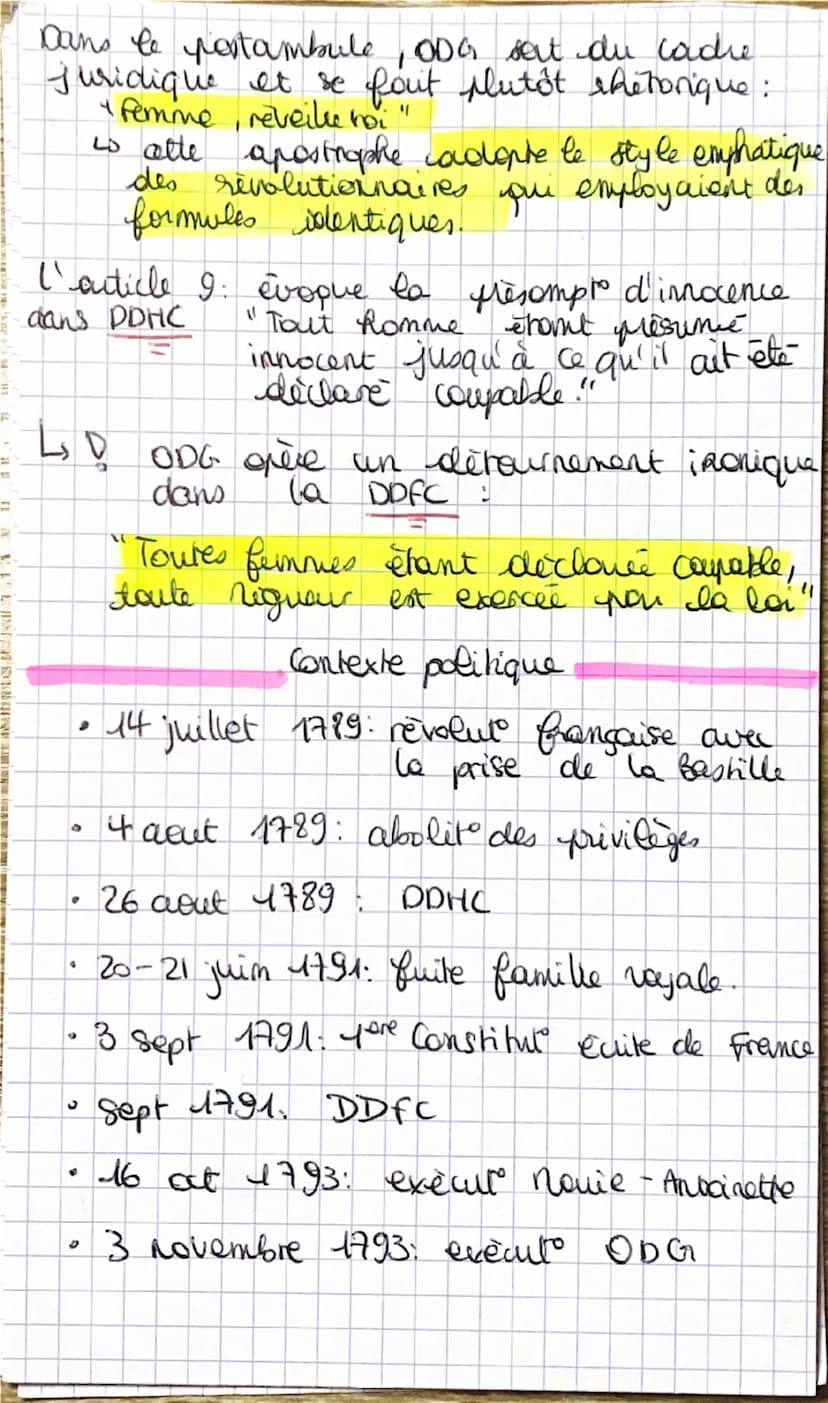 Dans le postambule, ODG sort du cadre
juridique et se fait plutôt rhétorique :
"femme, réveille toi"
↳ cette apostrophe adopte le style emphatique
des révolutionnaires qui employaient des
formules identiques.
L'article 9: évoque la présompt° d'innocence
dans DDHC "Tout homme étant présumé
innocent jusqu'à ce qu'il ait été
déclaré coupable."
↳ ! ODG opère un détournement ironique
dans la DDFC :
"Toutes femmes étant déclarée coupable,
toute rigueur est exercée par la loi"
Contexte politique
• 14 juillet 1789: révolut° française avec
la prise de la Bastille
• 4 aout 1789: abolit° des privilèges
• 26 aout 1789 : DDHC
• 20-21 juin 1791: fuite famille royale.
• 3 sept 1791: 1ère Constitut° écrite de France
• sept 1791: DDFC
• 16 oct 1793: exécut° Marie-Antoinette
• 3 novembre 1793: exécut° ODG